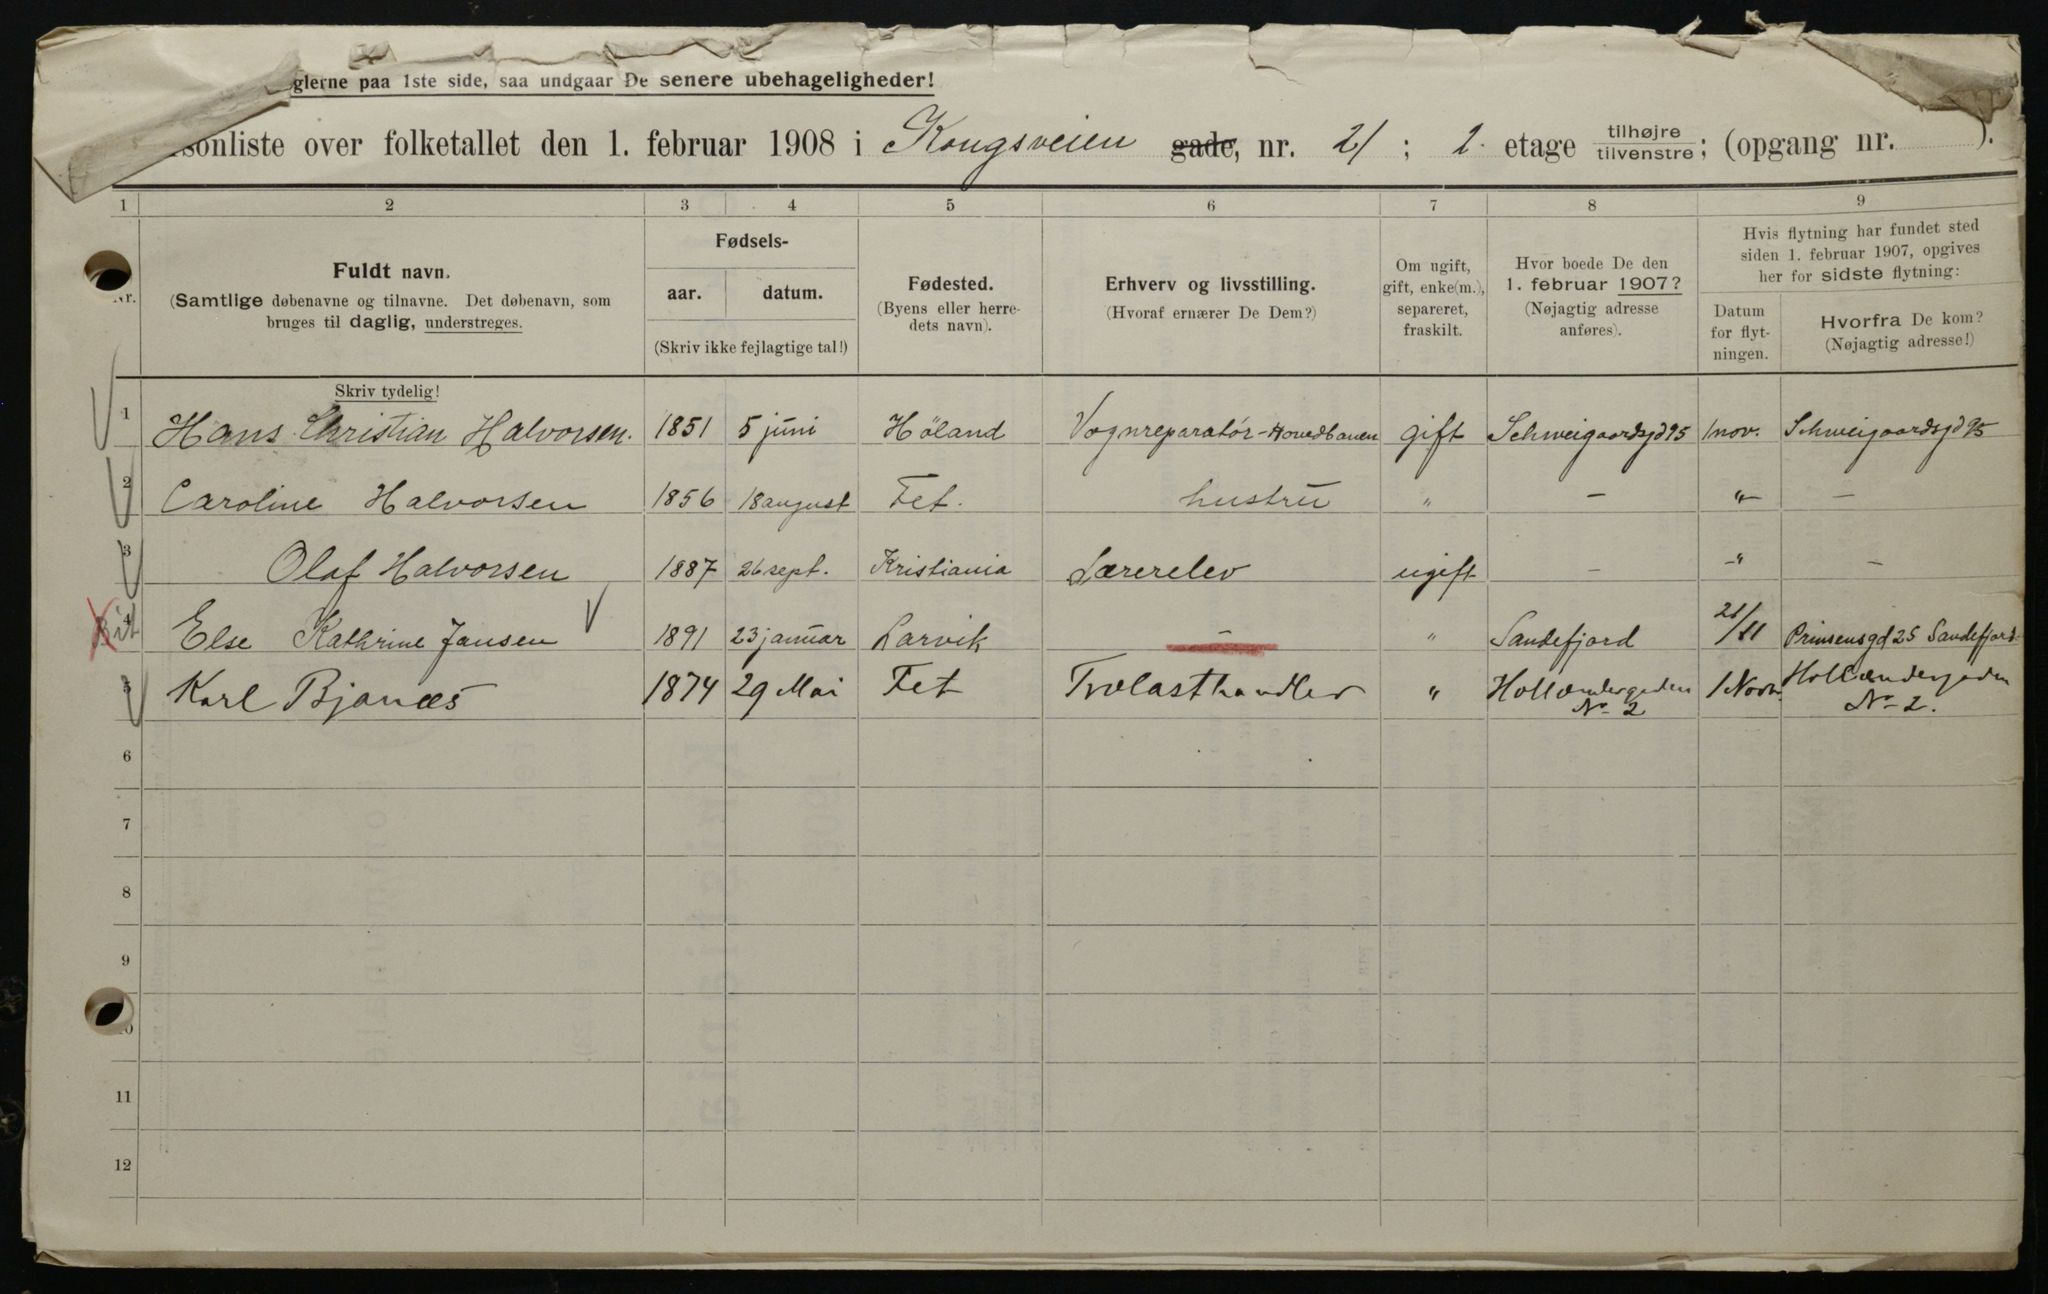 glerne paa 1ste side, saa undgaar De senere ubehageligheder!
sonliste over folketallet den 1. februar 1908 i Kongsveien gade, nr. 21; 2. etage tilhøjre tilvenstre; (opgang nr. ).
1 2 3 4 5 6 7 8 9
Nr.
Fuldt navn.
(Samtlige døbenavne og tilnavne. Det døbenavn, som
bruges til daglig, understreges.
Skriv tydelig!
Fødsels-
aar. datum.
(Skriv ikke fejlagtige tal!)
Fødested.
(Byens eller herre-
dets navn).
Erhverv og livsstilling.
(Hvoraf ernærer De Dem?)
Om ugift,
gift, enke(m.),
separeret,
fraskilt.
Hvor boede De den
1. februar 1907?
(Nøjagtig adresse
anføres).
Hvis flytning har fundet sted
siden 1. februar 1907, opgives
her for sidste flytning:
Datum
for flyt-
ningen.
Hvorfra De kom?
(Nøjagtig adresse!)
1 Hans Christian Halvorsen. 1851 5 juni Höland Vognreparatör-Hovedbanen gift Schweigaardsgd 95 1 nov. Schweigaardsgd 95
2 Caroline Halvorsen 1856 18 august Fet. hustru " — " —
3 Olaf Halvorsen 1887 26 sept. Kristiania Lærerelev ugift — " —
4 Else Kathrine Jansen 1891 23 januar Larvik — " Sandefjord 21/11 Prinsensgd 25 Sandefjord
5 Karl Bjanæs 1874 29 Mai Fet Trælasthandler " Hollændergaden No 2 1 Novbr. Hollændergaden No 2.
6
7
8
9
10
11
12